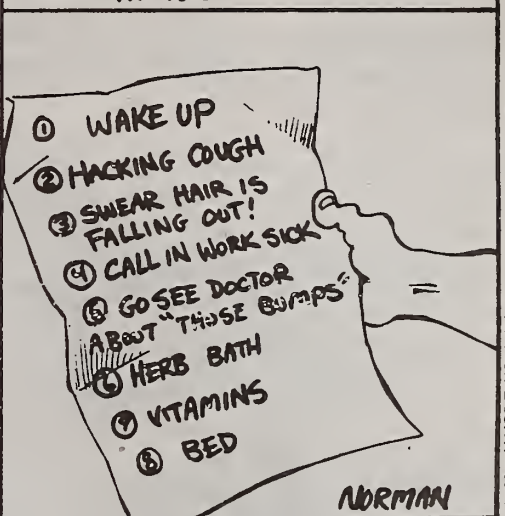 ① WAKE UP
② HACKING COUGH
③ SWEAR HAIR IS
FALLING OUT!
④ CALL IN WORK SICK
⑤ GO SEE DOCTOR
ABOUT "THOSE BUMPS"
⑥ HERB BATH
⑦ VITAMINS
⑧ BED
NORMAN